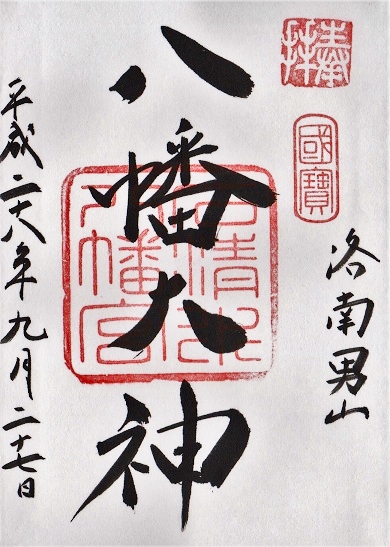 奉拝
國寶
洛南男山
八幡大神
石清水
八幡宮
平成二十八年九月二十七日